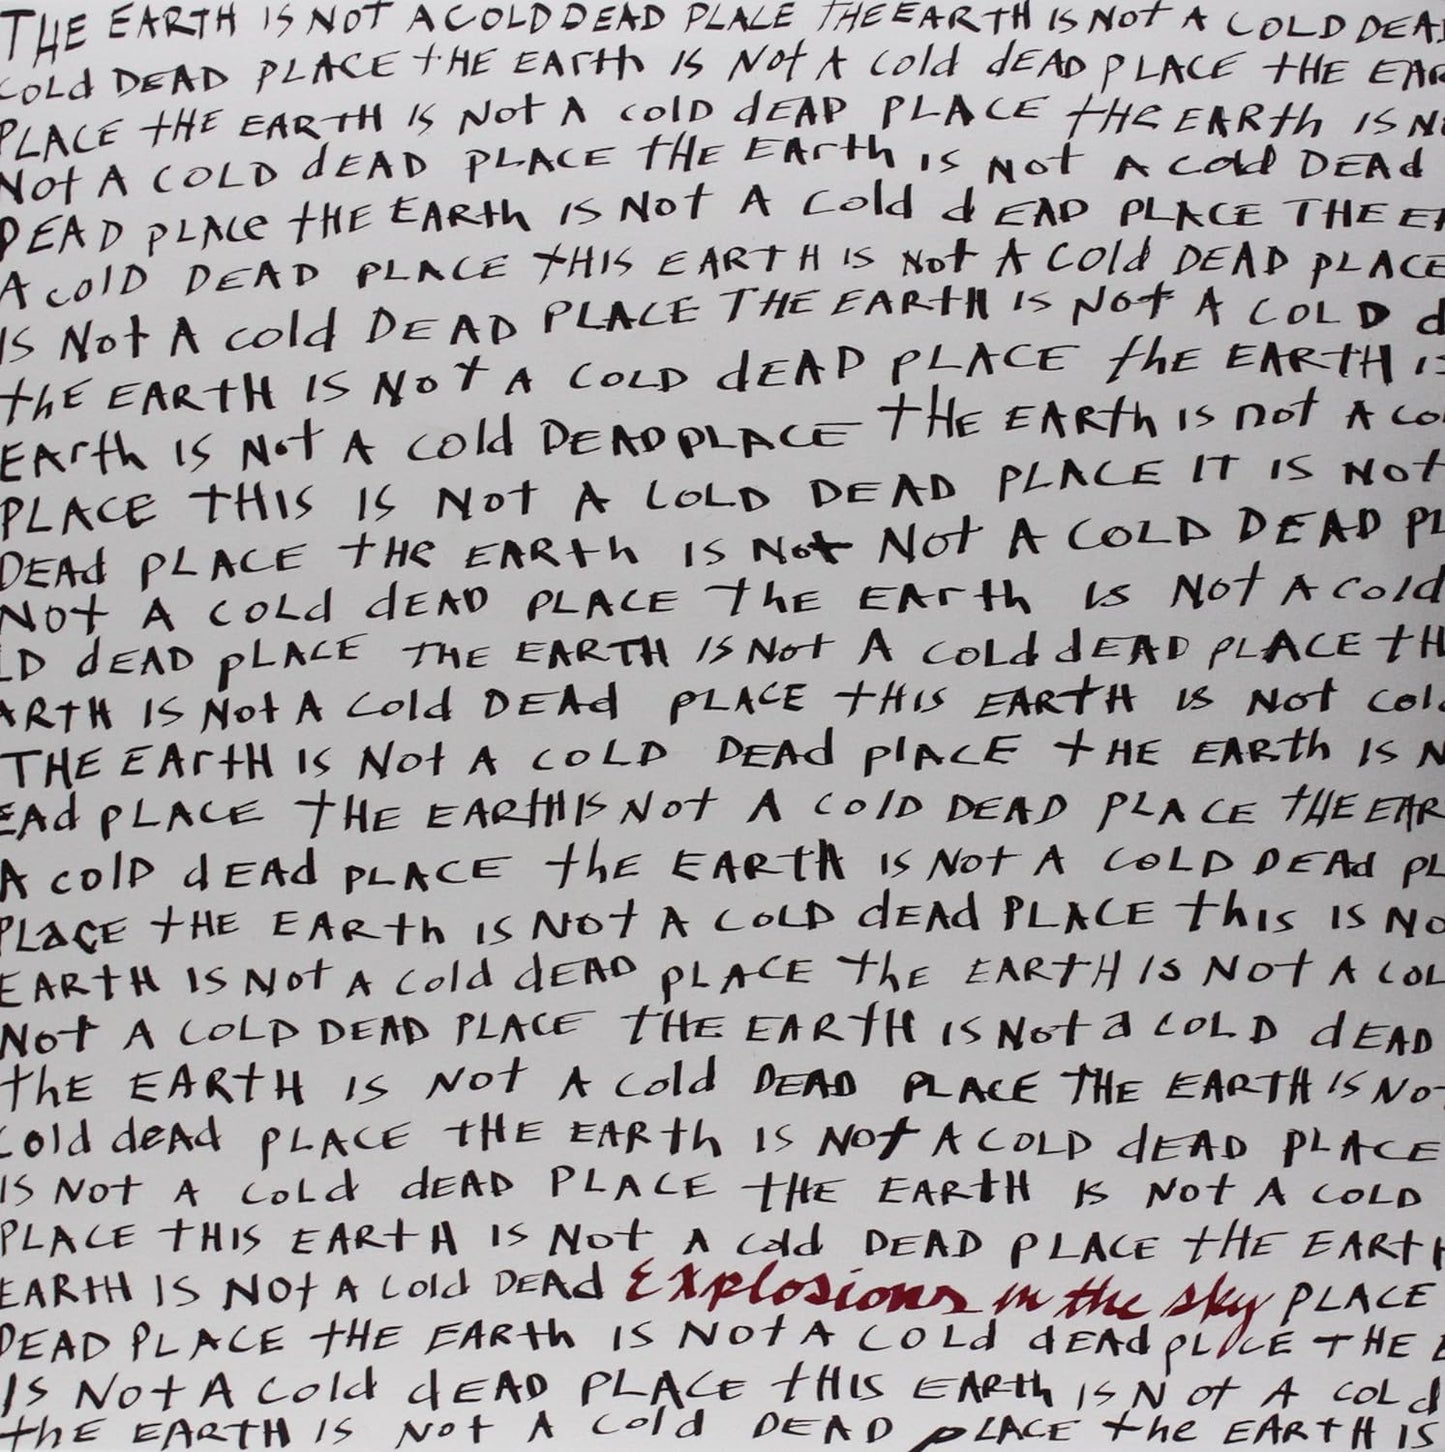 THE EARTH IS NOT A COLD DEAD PLACE THE EARTH IS NOT A COLD DEAD
COLd DEAD PLACE tHE EArth IS Not A cold dEAD PLACE tHE EAR
PLACE tHE EARTH IS Not A cold dEAD PLACE tHE EARth IS N
Not A COLD dEAD PLACE tHE EArth IS Not A cold DEAd
DEAD pLAce tHE EARth IS Not A cold dEAD PLACE THE E
A colD DEAD PLACE tHIS EARTH IS Not A Cold DEAD pLACE
IS Not A cold DEAD PLACE THE EARtH IS Not A COLD d
thE EARTH IS Not A COLD dEAD PLACE thE EARTH I
EArth IS Not A cold DEAD pLACE tHE EARth IS not A co
PLACE tHIS IS Not A COLD DEAD PLACE IT IS Not
DEAd PLACE tHE EARth IS Not Not A COLD DEAD PL
Not A COLd dEAD PLACE thE EArth IS Not A cold
LD dEAD pLACE THE EARTH IS Not A cold dEAD PLACE tH
ARTH IS Not A cold DEAd PLACE tHIS EARtH IS Not col
THE EArtH IS Not A COLD DEAd plACE tHE EARth IS N
EAd pLACE tHE EARTH IS Not A colD DEAD PLACE tHE EAR
A colD dEAd PLACE thE EARtH IS Not A COLD DEAd PL
PLACE tHE EARth IS Not A COLD dEAd PLACE this IS No
EARTH IS Not A cold dEAD pLACE the EARTH IS Not A COL
Not A COLD DEAD PLACE tHE EARTH IS Not a COLD dEAD
thE EARtH IS Not A cold DEAD PLACE THE EARTH IS No
Cold deAd PLACE tHE EARth IS NOt A COLD dEAD PLACE
IS Not A COLd dEAD PLACE tHE EARtH IS Not A COLD
PLACE tHIS EARtH IS Not A cold DEAD PLACE tHE EARTH
EARTH IS NOt A Cold DEAd Explosions in the sky PLACE
DEAD PLACE tHE EARth IS NOt A COLd dEAd pLACE THE E
IS Not A Cold dEAD PLACE tHIS EARth IS Not A COLd
thE EARTH IS Not A Cold DEAD pLACE the EARTH IS